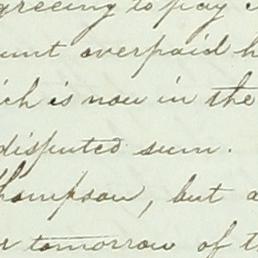 greeing to pay
unt overpaid h
ich is now in the
disputed sum.
Thompson, but a
r tomorrow of t